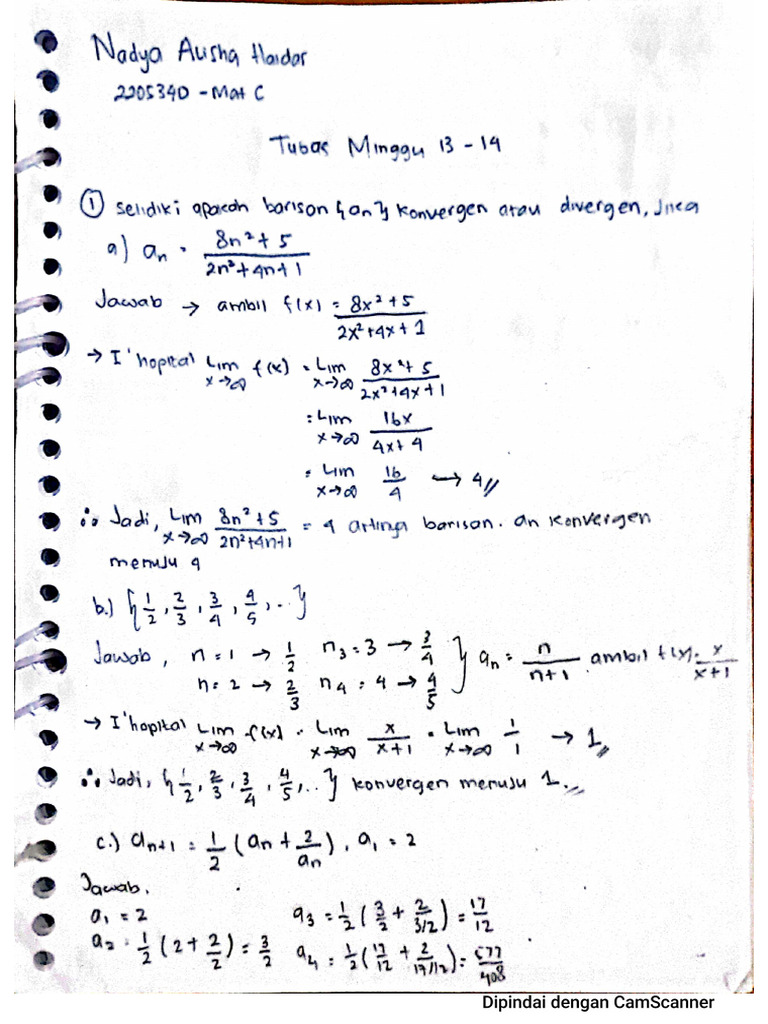 Nadya Alisha Haidar
2205340 - Mat C
Tubas Minggu 13 - 14
① Selidiki apakah barisan {an} konvergen atau divergen, Jika
a) an = 8n² + 5 / 2n² + 4n + 1
Jawab → ambil f(x) = 8x² + 5 / 2x² + 4x + 1
→ I'hopital Lim x→∞ f(x) = Lim x→∞ 8x² + 5 / 2x² + 4x + 1
= Lim x→∞ 16x / 4x + 4
= Lim x→∞ 16 / 4 → 4//
∴ Jadi, Lim x→∞ 8n² + 5 / 2n² + 4n + 1 = 4 artinya barisan. an konvergen
menuju 4
b.) {1/2, 2/3, 3/4, 4/5, ...}
Jawab, n = 1 → 1/2 n3 = 3 → 3/4 } an = n / n + 1 . ambil f(x) = x / x + 1
n = 2 → 2/3 n4 = 4 → 4/5
→ I'hopital Lim x→∞ f(x) = Lim x→∞ x / x + 1 = Lim x→∞ 1 / 1 → 1//
∴ Jadi, {1/2, 2/3, 3/4, 4/5, ...} konvergen menuju 1.//
c.) an+1 = 1/2 (an + 2/an), a1 = 2
Jawab,
a1 = 2 a3 = 1/2 (3/2 + 2/3/2) = 17/12
a2 = 1/2 (2 + 2/2) = 3/2 a4 = 1/2 (17/12 + 2/17/12) = 577/408
Dipindai dengan CamScanner